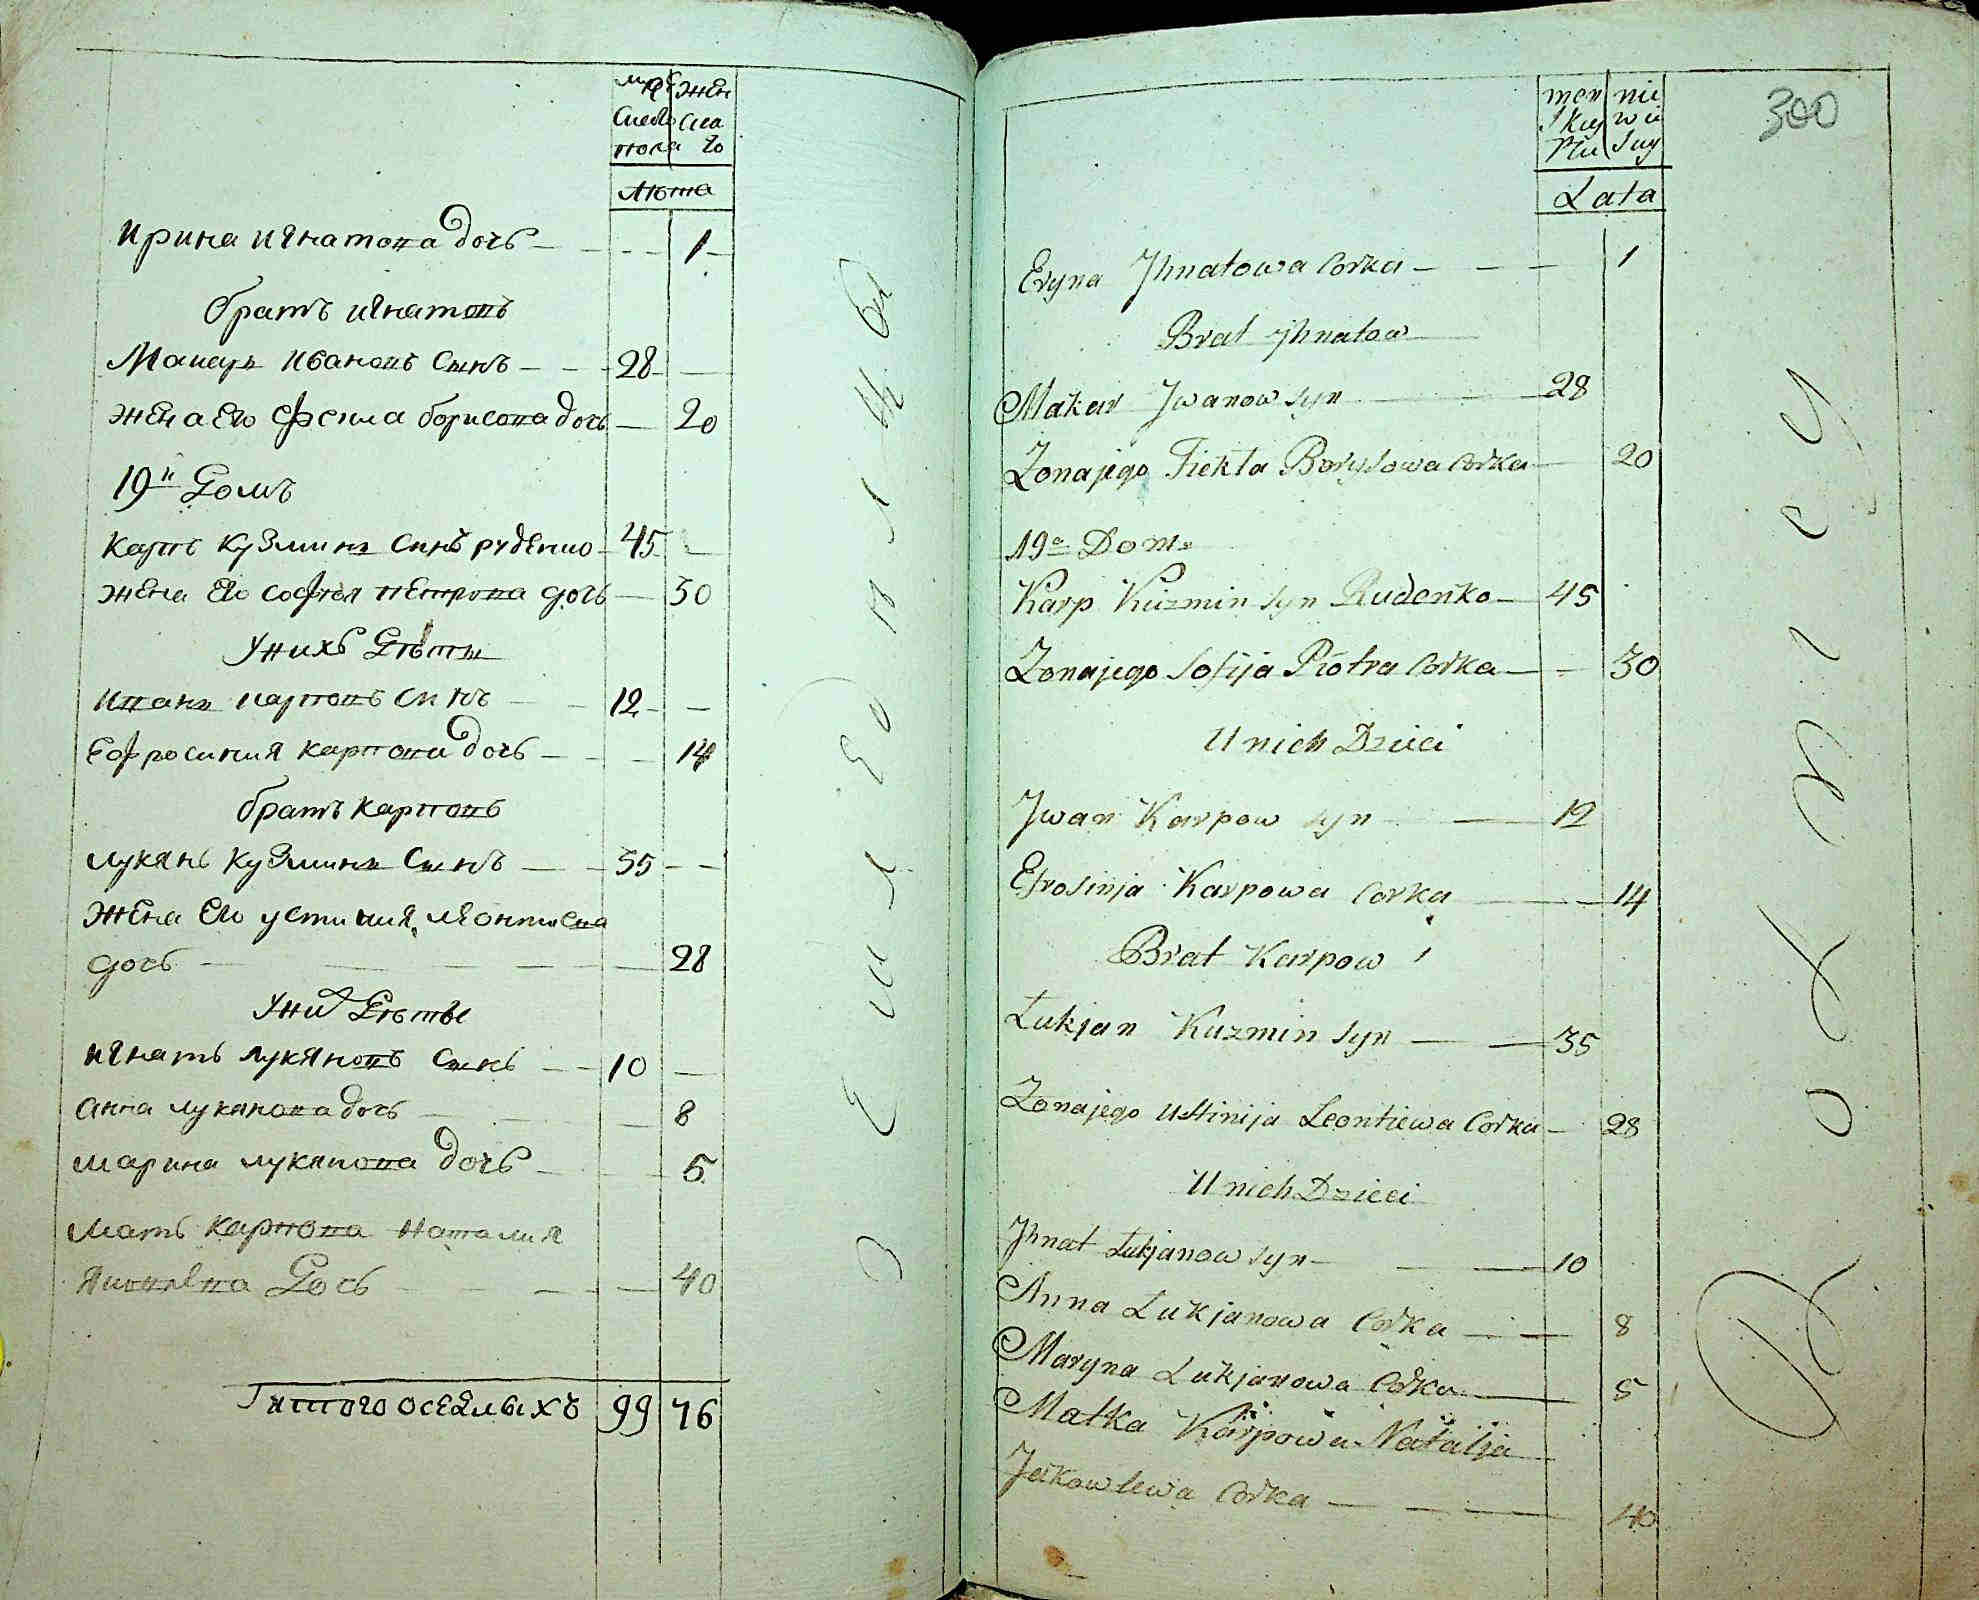 муже
ска
пола
жен
ска
го
лѣта
ирина игнатова дочь 1
братъ игнатовъ
Макаръ ивановъ сынъ 28
жена его Фекла борисова дочь 20
19й Домъ
карпъ кузминъ синъ руденко 45
жена его софія петрова дочь 30
Унихъ Дѣты
иванъ карповъ синъ 12
Ефросиния карпова дочь 14
братъ карповъ
лукянъ кузминъ сынъ 35
жена его устиния леонтиева
дочь 28
Уних Дѣты
игнатъ лукяновъ сынъ 10
анна лукянова дочь 8
марина лукянова дочь 5
мать карпова наталия
яковлева Дочь 40
итого оседлыхъ 99 76
Земледѣлцы
300
men
skiey
Płci
nie
wie
sciey
Lata
Eryna Jhnatowa Corka 1
Brat Jhnatow
Makar Jwanow syn 28
Zona jego Fiekla Borysowa Corka 20
19o Dom
Karp Kuzmin syn Rudenko 45
Zona jego Sofija Piotra Corka 30
U nich Dzieci
Jwan Karpow syn 12
Efrosinja Karpowa Corka 14
Brat Karpow
Łukjan Kuzmin syn 35
Zona jego Ustinija Leontiewa Corka 28
U nich Dzieci
Jhnat Łukjanow syn 10
Anna Lukjanowa Corka 8
Maryna Lukjanowa Corka 5
Matka Karpowa Natalja
Jakowlewa Corka 40
Rolnicy